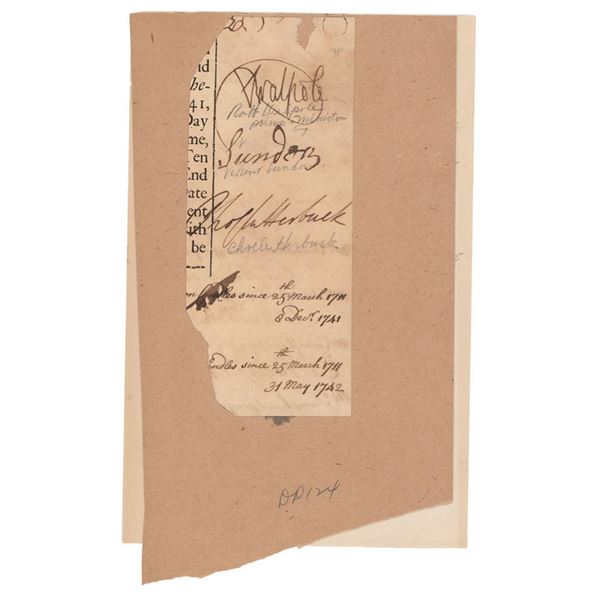 nd
he-
41,
Day
me,
Ten
End
Date
ent
ith
be
RWalpole
Robt Walpole
prime minister
Sundon
Viscont Sundon
Tho Clutterbuck
Cho Clutherbuck
ndles since 25th March 1711
8 Decr. 1741
andles since 25th March 1711
31 May 1742
DD124